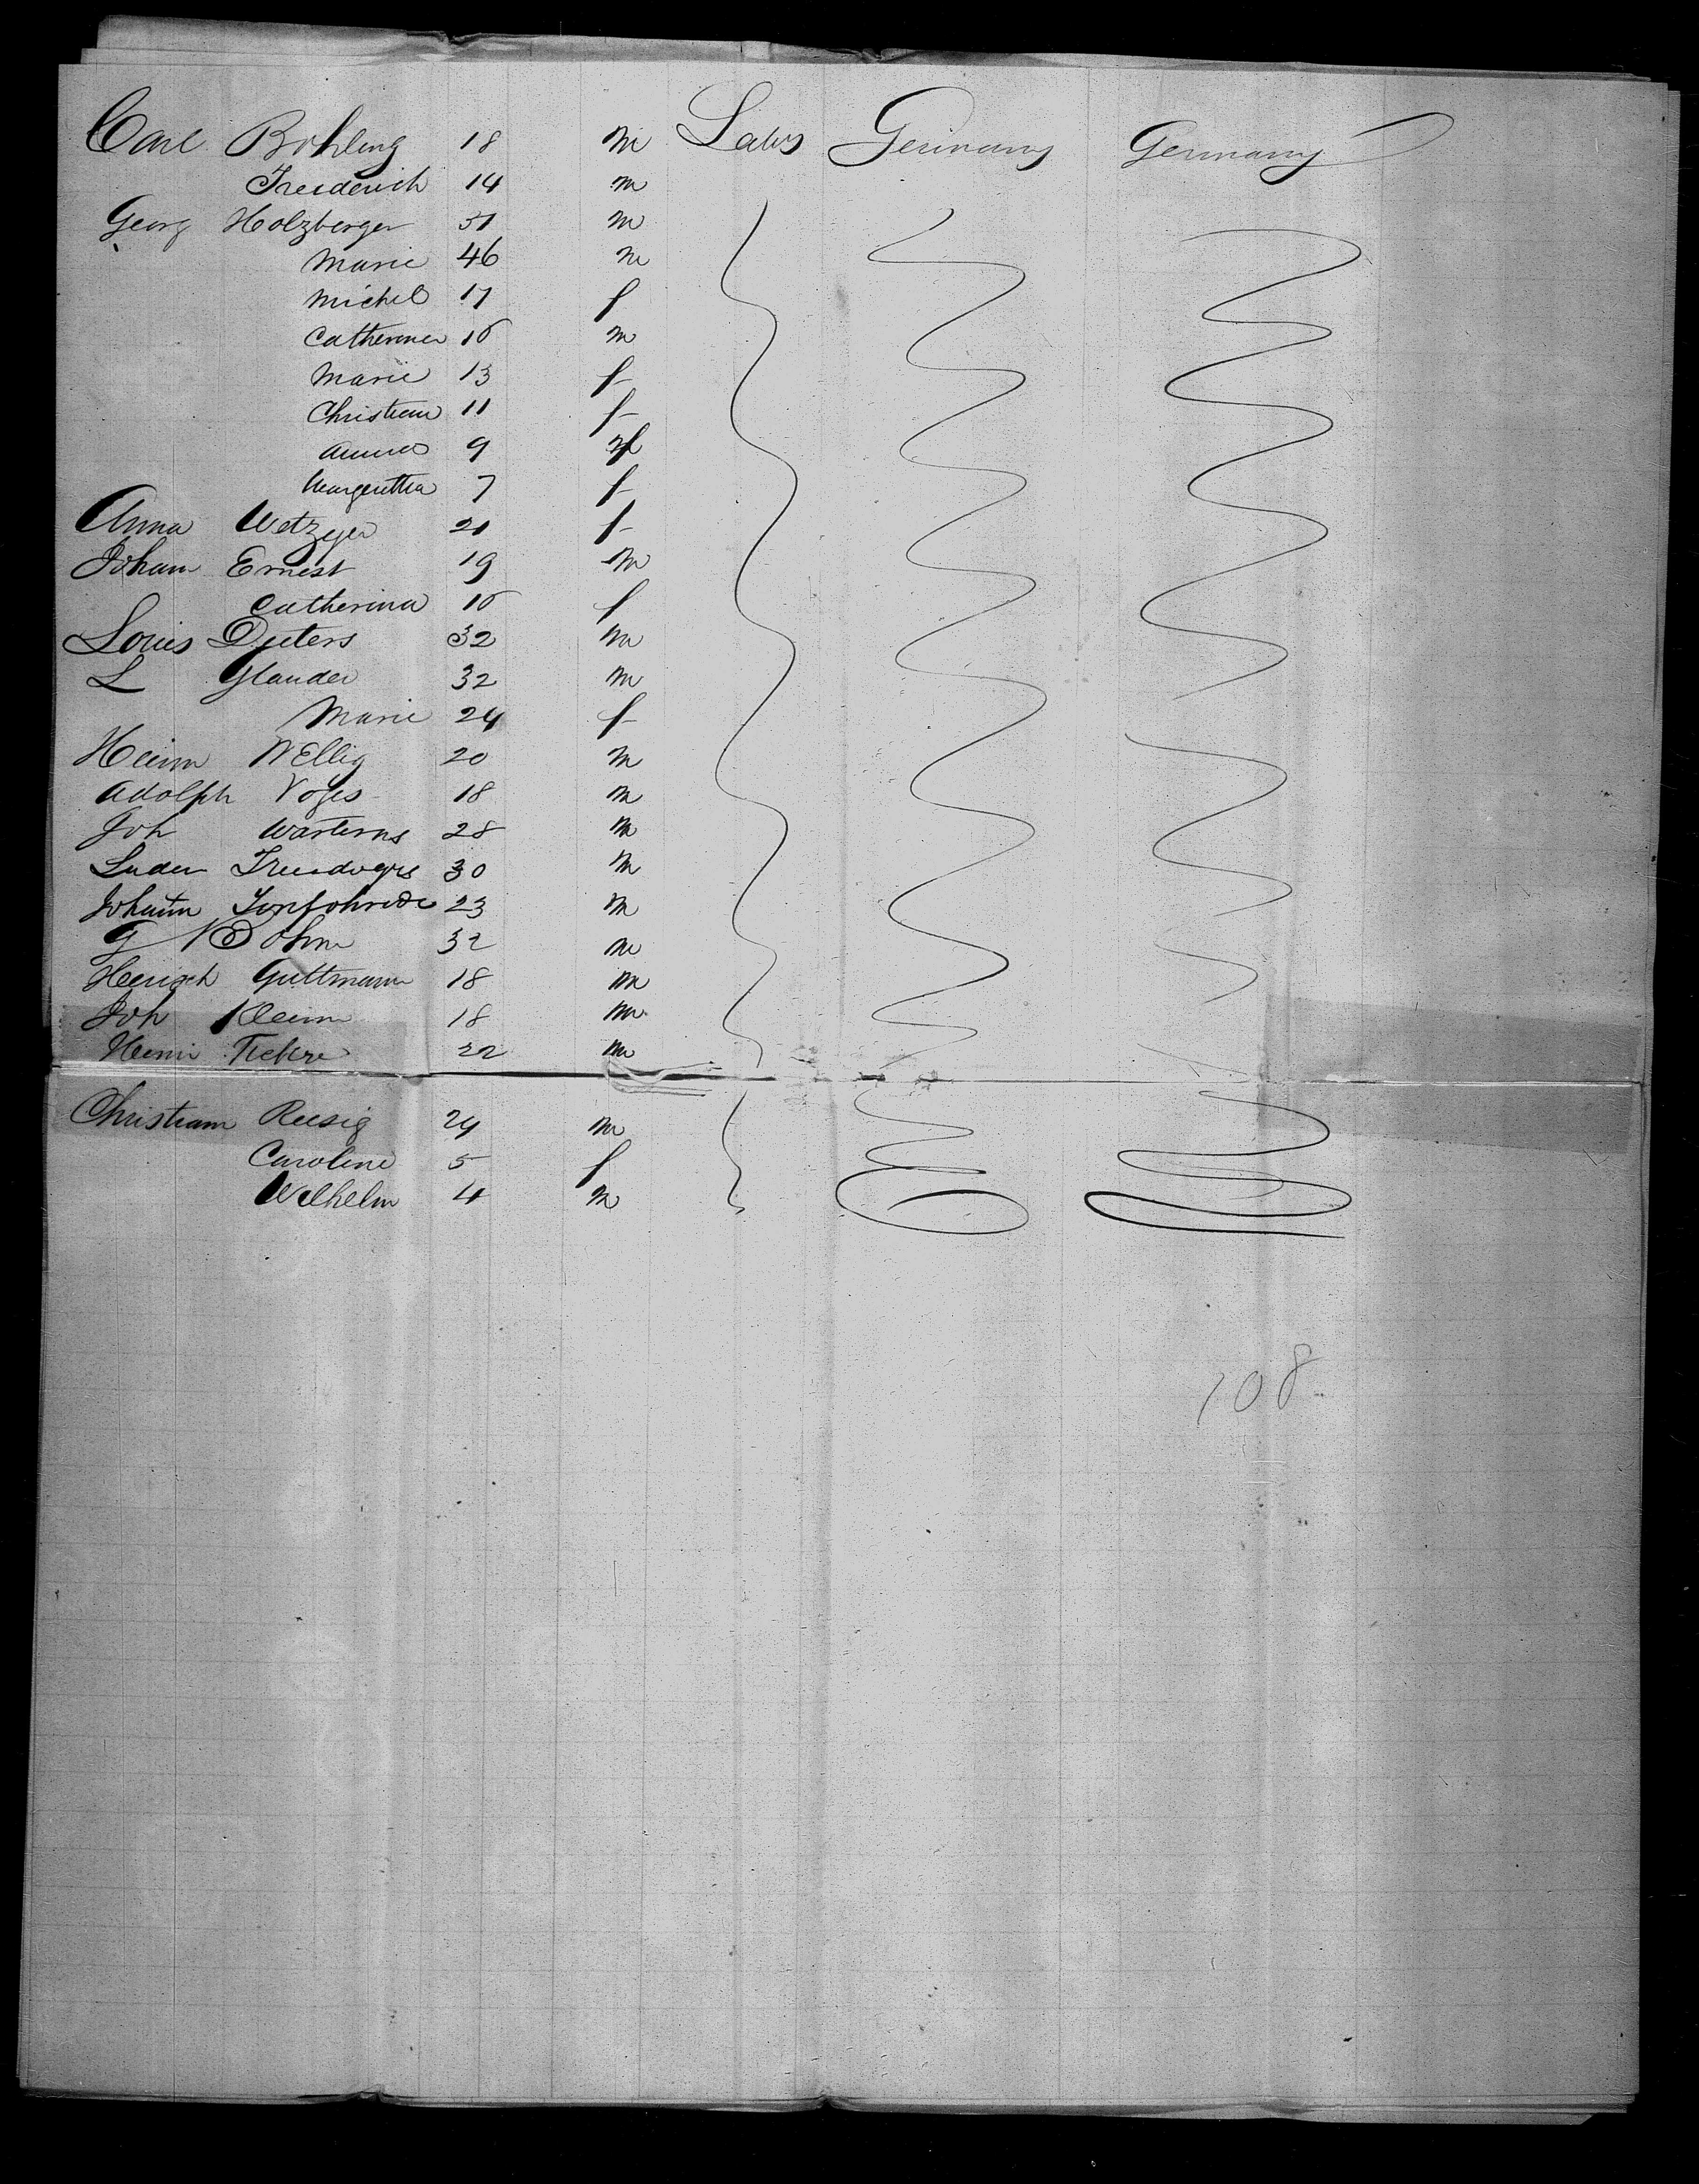 Carl Bohling 18 m Labs Germany Germany
Freiderich 14 m
Georg Holzberger 51 m
Marie 46 m
Michel 17 f
Catherina 15 m
Marie 13 f
Christian 11 f
Anna 9 f
Margeretha 7 f
Anna Wetzger 21 f
Johann Ernest 19 m
Catherina 15 f
Louis Dieters 32 m
L Glander 32 m
Marie 24 f
Heinr Wellig 20 m
Adolph Voges 18 m
Joh Warterns 28 m
Luder 30 m
Johann 23 m
G Bohm 32 m
Heinrich Guttmann 18 m
Joh Klein 18 m
Heinr 22 m
Christian Reesig 24 m
Caroline 5 f
Wilhelm 4 m
108